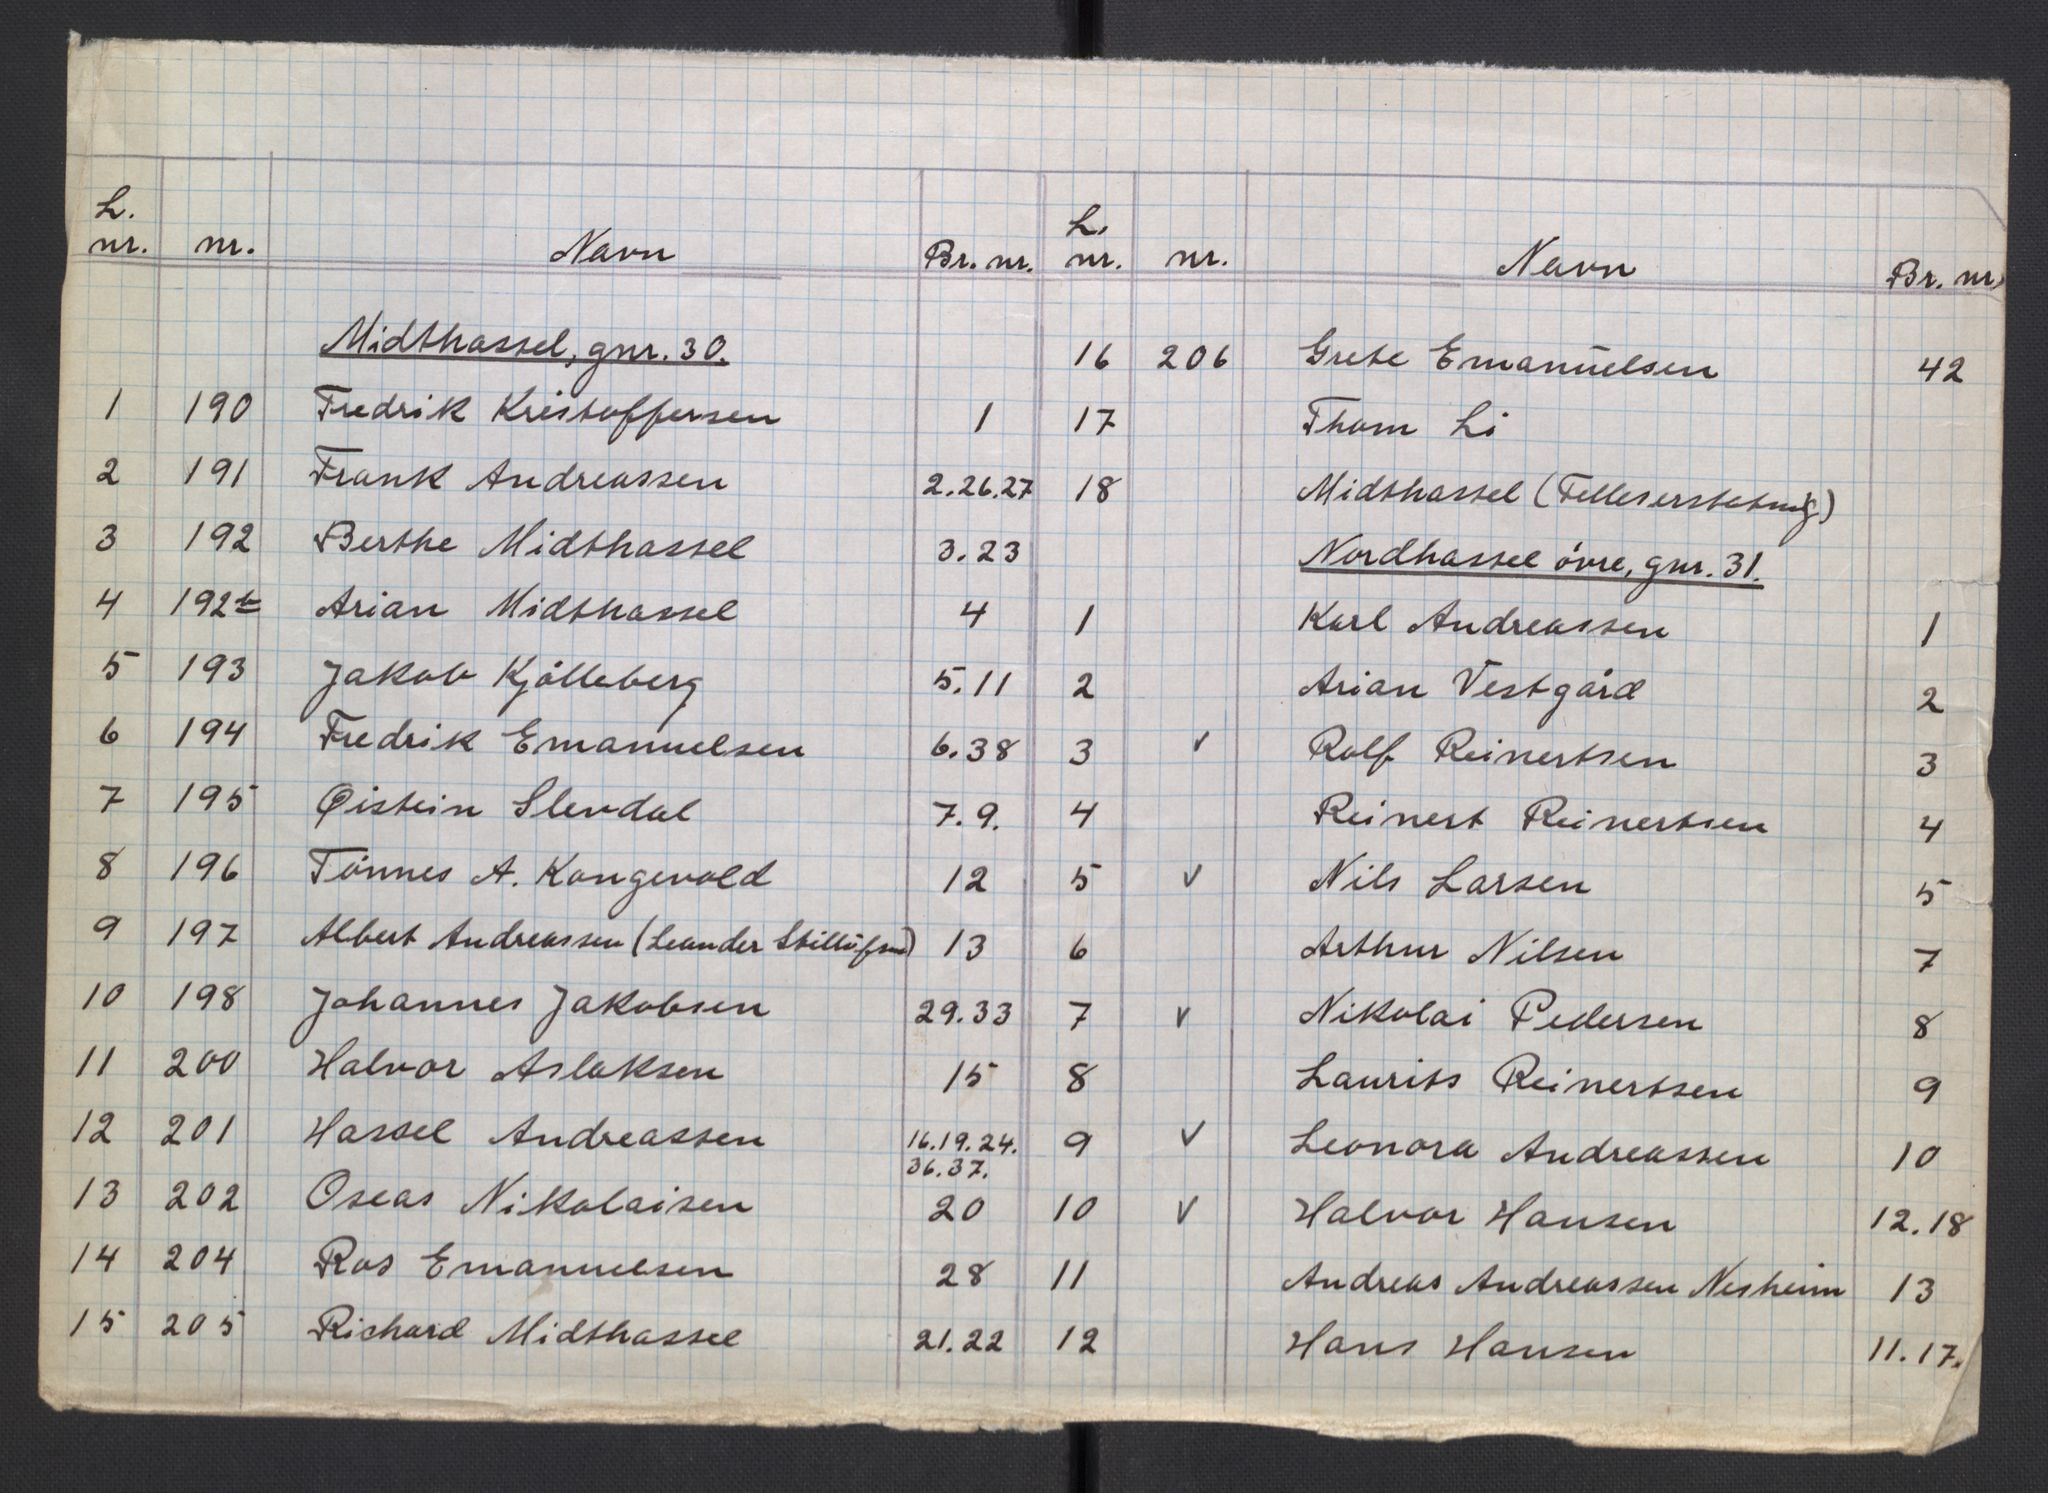 L. nr. nr. Navn Br. nr.
Midthassel, gnr. 30.
1 190 Fredrik Kristoffersen 1
2 191 Frank Andreassen 2.26.27
3 192 Berthe Midthassel 3.23
4 192b Arian Midthassel 4
5 193 Jakob Kjölleberg 5.11
6 194 Fredrik Emanuelsen 6.38
7 195 Øistein Slevdal 7.9.
8 196 Tönnes A. Kongevold 12
9 197 Albert Andreassen (Leander) 13
10 198 Johannes Jakobsen 29.33
11 200 Halvor Aslaksen 15
12 201 Hassel Andreassen 16.19.24.
36.37.
13 202 Oseas Nikolaisen 20
14 204 Ras Emanuelsen 28
15 205 Richard Midthassel 21.22
L. nr. nr. Navn Br. nr.
16 206 Grete Emanuelsen 42
17 Thom Li
18 Midthassel (Felleserstatning)
Nordhassel övre, gnr. 31.
1 Karl Andreassen 1
2 Arian Vestgård 2
3 v Rolf Reinertsen 3
4 Reinert Reinertsen 4
5 v Nils Larsen 5
6 Arthur Nilsen 7
7 v Nikolai Pedersen 8
8 Laurits Reinertsen 9
9 v Leonora Andreassen 10
10 v Halvor Hansen 12.18
11 Andreas Andreassen Nesheim 13
12 Hans Hansen 11.17.